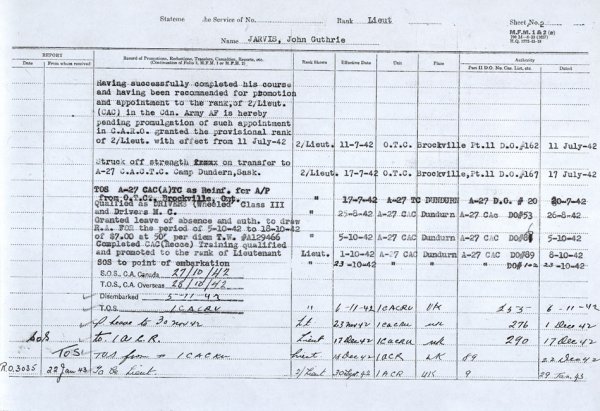 Stateme he Service of No. Rank Lieut Sheet No. 2
M.F.M. 1 & 2
Name JARVIS, John Guthrie
REPORT Record of Promotions, Reductions, Transfers, Casualties, Reports, etc. Authority
Date From whom received Rank Shown Effective Date Unit Place Part II D.O. No. Cas. List, etc. Dated
Having successfully completed his course
and having been recommended for promotion
and appointment to the rank of 2/Lieut.
(CAC) in the Cdn. Army AF is hereby
pending promulgation of such appointment
in C.A.R.O. granted the provisional rank
of 2/Lieut. with effect from 11 July-42 2/Lieut. 11-7-42 O.T.C. Brockville, Pt.11 D.O.#162 11 July-42
Struck off strength on transfer to
A-27 C.A.C.T.C. Camp Dundurn, Sask. 2/Lieut. 17-7-42 O.T.C. Brockville, Pt.11 D.O.#167 17 July-42
TOS A-27 CAC(A)TC as Reinf. for A/P
from O.T.C. Brockville, Ont. " 17-7-42 A-27 TC DUNDURN A-27 D.O. # 20 20-7-42
Qualified as DRIVERS (Wheeled Class III
and Drivers M. C. " 25-8-42 A-27 CAC Dundurn A-27 CAC DO#53 26-8-42
Granted leave of absence and auth. to draw
R.A. FOR the period of 5-10-42 to 18-10-42
of $7.00 at 50¢ per diem T.W. #A129466 " 5-10-42 A-27 CAC Dundurn A-27 CAC 5-10-42
Completed CAC(Recce) Training qualified
and promoted to the rank of Lieutenant Lieut. 1-10-42 A-27 CAC Dundurn A-27 CAC DO#89 8-10-42
SOS to point of embarkation " 23-10-42 " " " DO#102 23-10-42
S.O.S., C.A. Canada 27/10/42
T.O.S., C.A. Overseas 28/10/42
Disembarked 5-11-42
T.O.S. 1 CACRU " 6-11-42 1 CACRU UK 253 6-11-42
leave to 30 Nov 42 Lt 23 Nov 42 1 CACRU UK 276 1 Dec 42
SOS to 1 A C R. Lieut 17 Dec 42 1 CACRU UK 290 17 Dec 42
TOS TOS from 1 CACRU Lieut 18 Dec 42 1 ACR UK 89 22 Dec 42
R.O. 3035 22 Jan 43 To be Lieut. 2/Lieut 30 Sept 42 1 ACR UK 9 29 Jan. 43